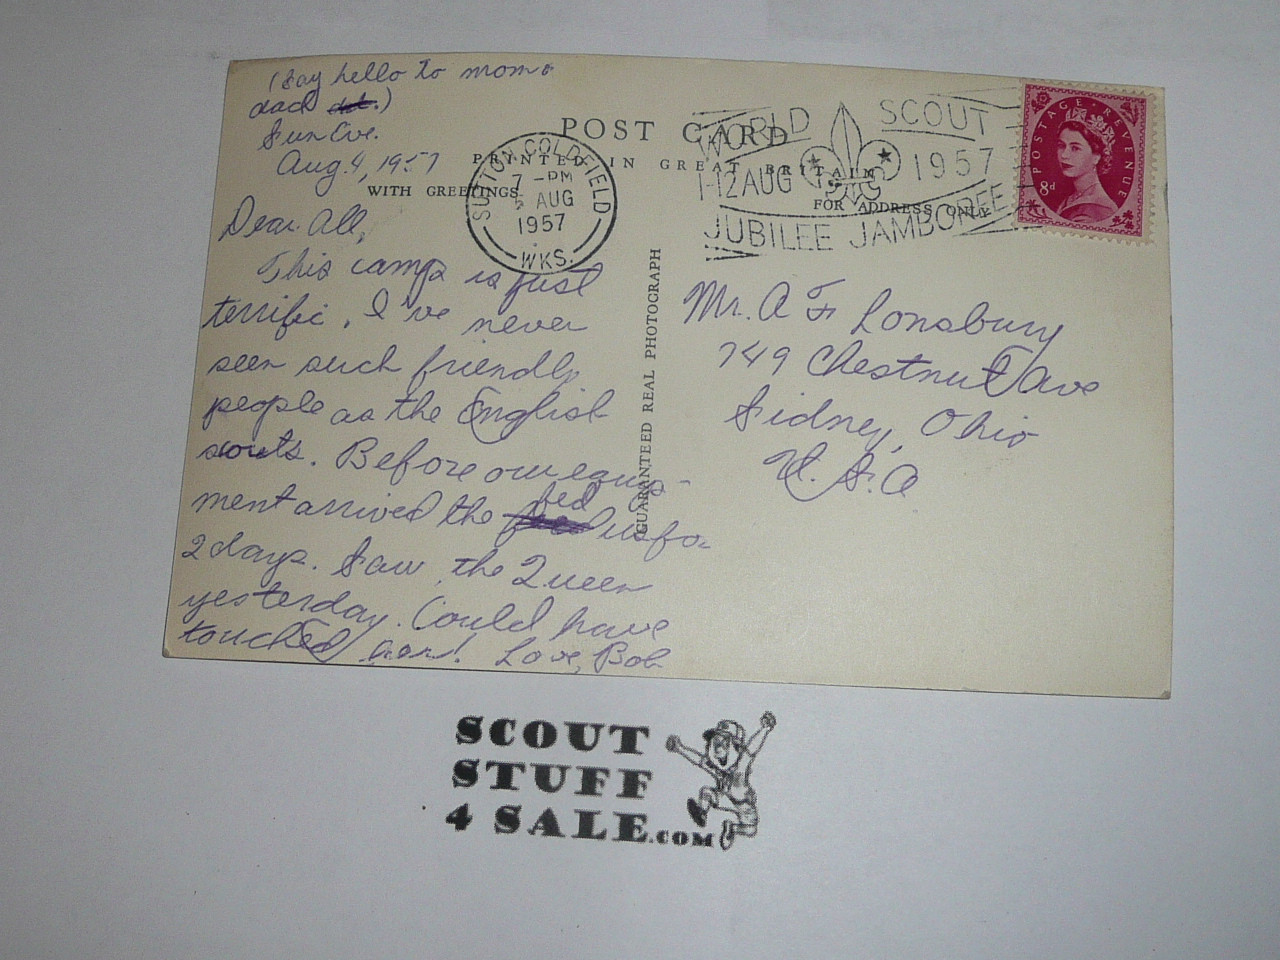 (Say hello to mom &
dad.)
Sun Eve.
Aug. 4, 1957
POST CARD
PRINTED IN GREAT BRITAIN
WITH GREETINGS
FOR ADDRESS ONLY
SUTTON COLDFIELD
7 - PM
5 AUG
1957
WKS.
WORLD SCOUT
1-12 AUG 1957
JUBILEE JAMBOREE
POSTAGE REVENUE
8d
Dear All,
This camp is just
terrific. I've never
seen such friendly
people as the English
scouts. Before our equip-
ment arrived the fed us for
2 days. Saw the Queen
yesterday. Could have
touched her! Love, Bob
GUARANTEED REAL PHOTOGRAPH
Mr. A F Lonsbury
749 Chestnut Ave
Sidney, Ohio
U.S.A
SCOUT
STUFF
4 SALE.COM